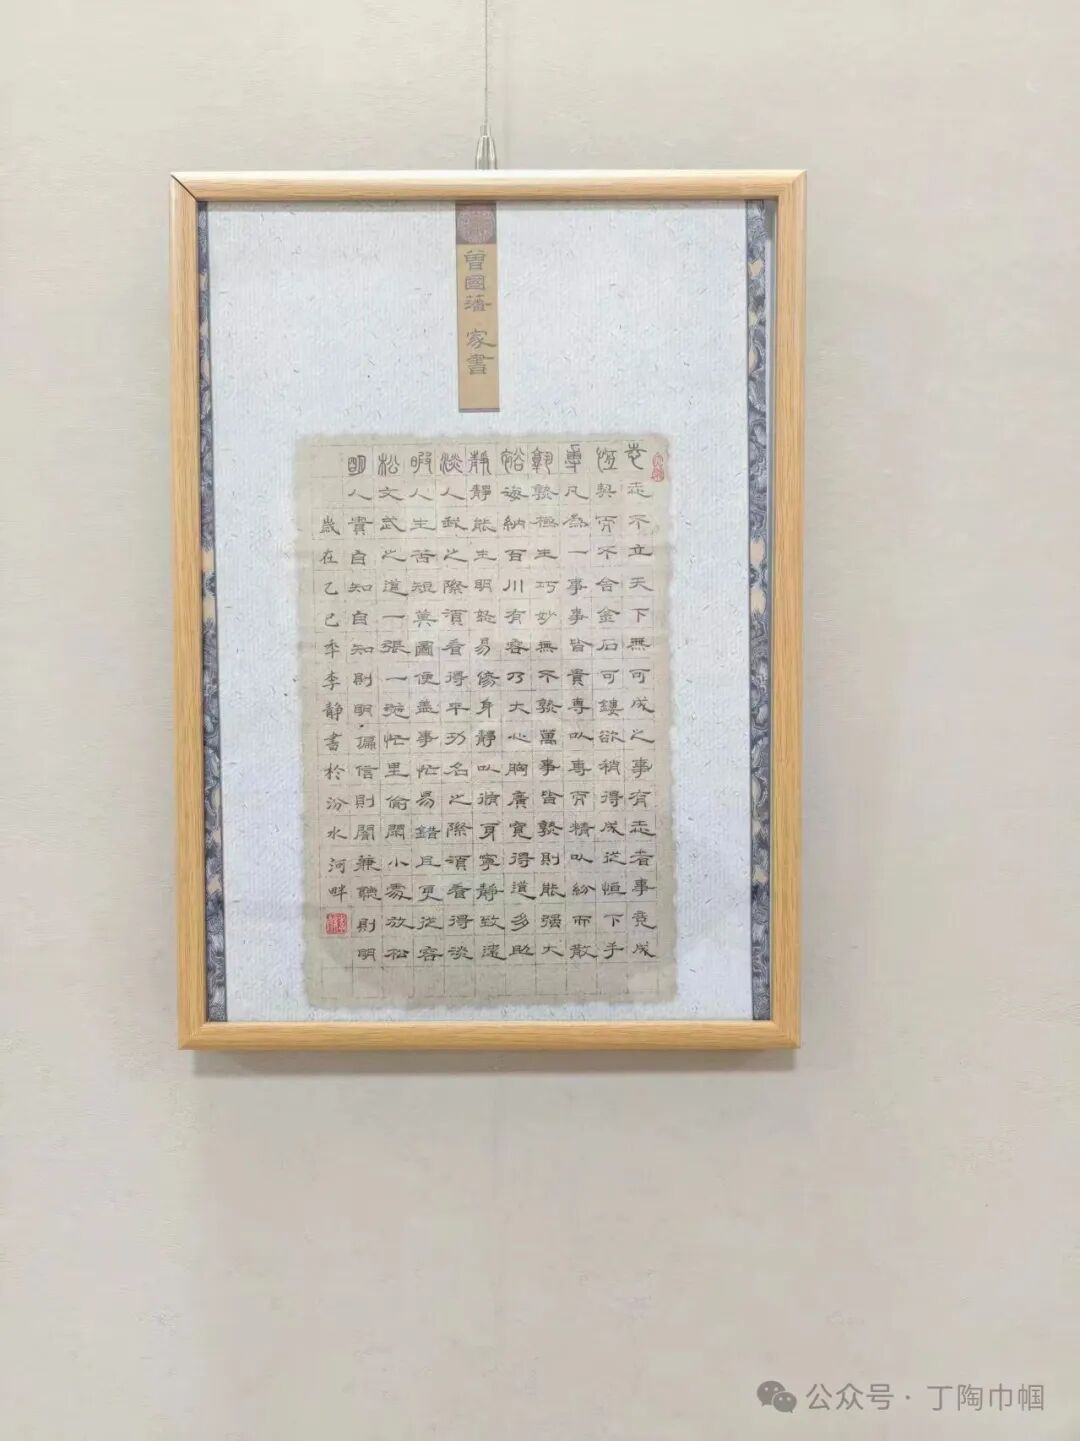 曾國藩 家書
志志不立天下無可成之事有志者事竟成
恆契而不舍金石可鏤欲稍得成從恒下手
專凡為一事事皆貴專以專而精以紛而散
熟熟極生巧妙無不熟萬事皆熟則能强大
海納百川有容乃大心胸廣寬得道多助
靜靜能生明怒易傷身靜以修身寧靜致遠
淡人我之際須看得平功名之際須看得淡
暇人生苦短莫圖便盡事忙易錯且更從容
松文武之道一張一弛忙里偷閑小處放松
明人貴自知自知則明偏信則闇兼聽則明
歲在乙巳年李靜書於汾水河畔
公众号·丁陶巾帼